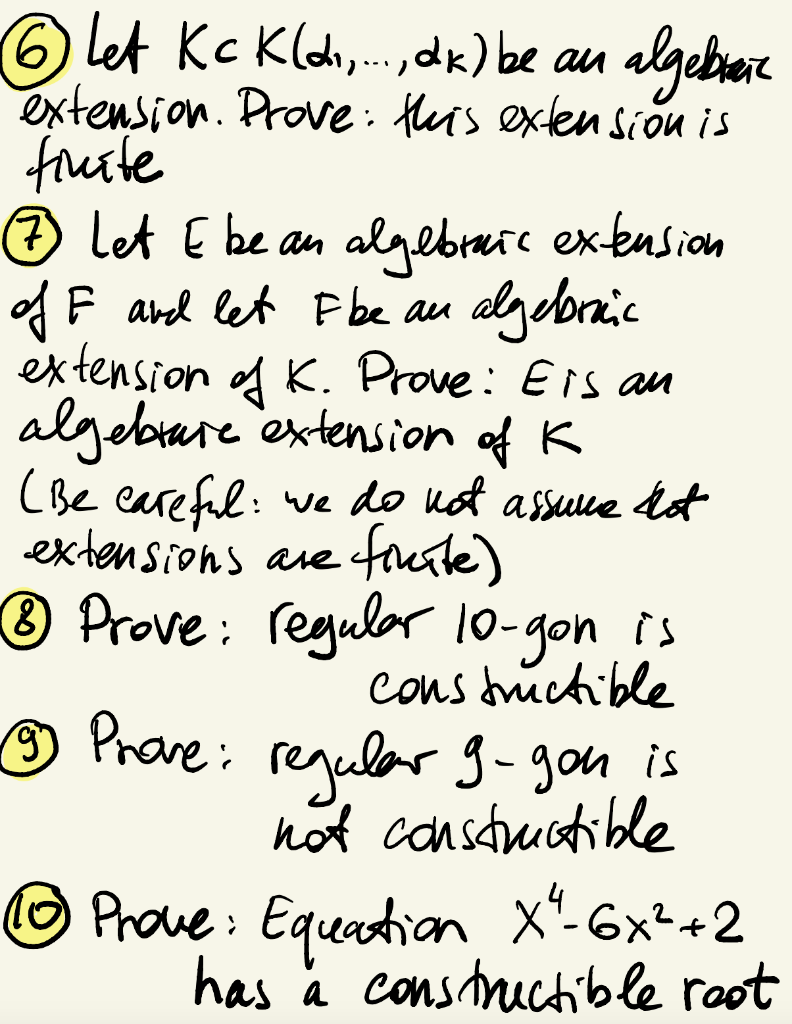 6 Let K ⊂ K(α₁,...,αₖ) be an algebraic
extension. Prove: this extension is
finite
7 Let E be an algebraic extension
of F and let F be an algebraic
extension of K. Prove: E is an
algebraic extension of K
(Be careful: we do not assume that
extensions are finite)
8 Prove: regular 10-gon is
constructible
9 Prove: regular 9-gon is
not constructible
10 Prove: Equation x⁴-6x²+2
has a constructible root